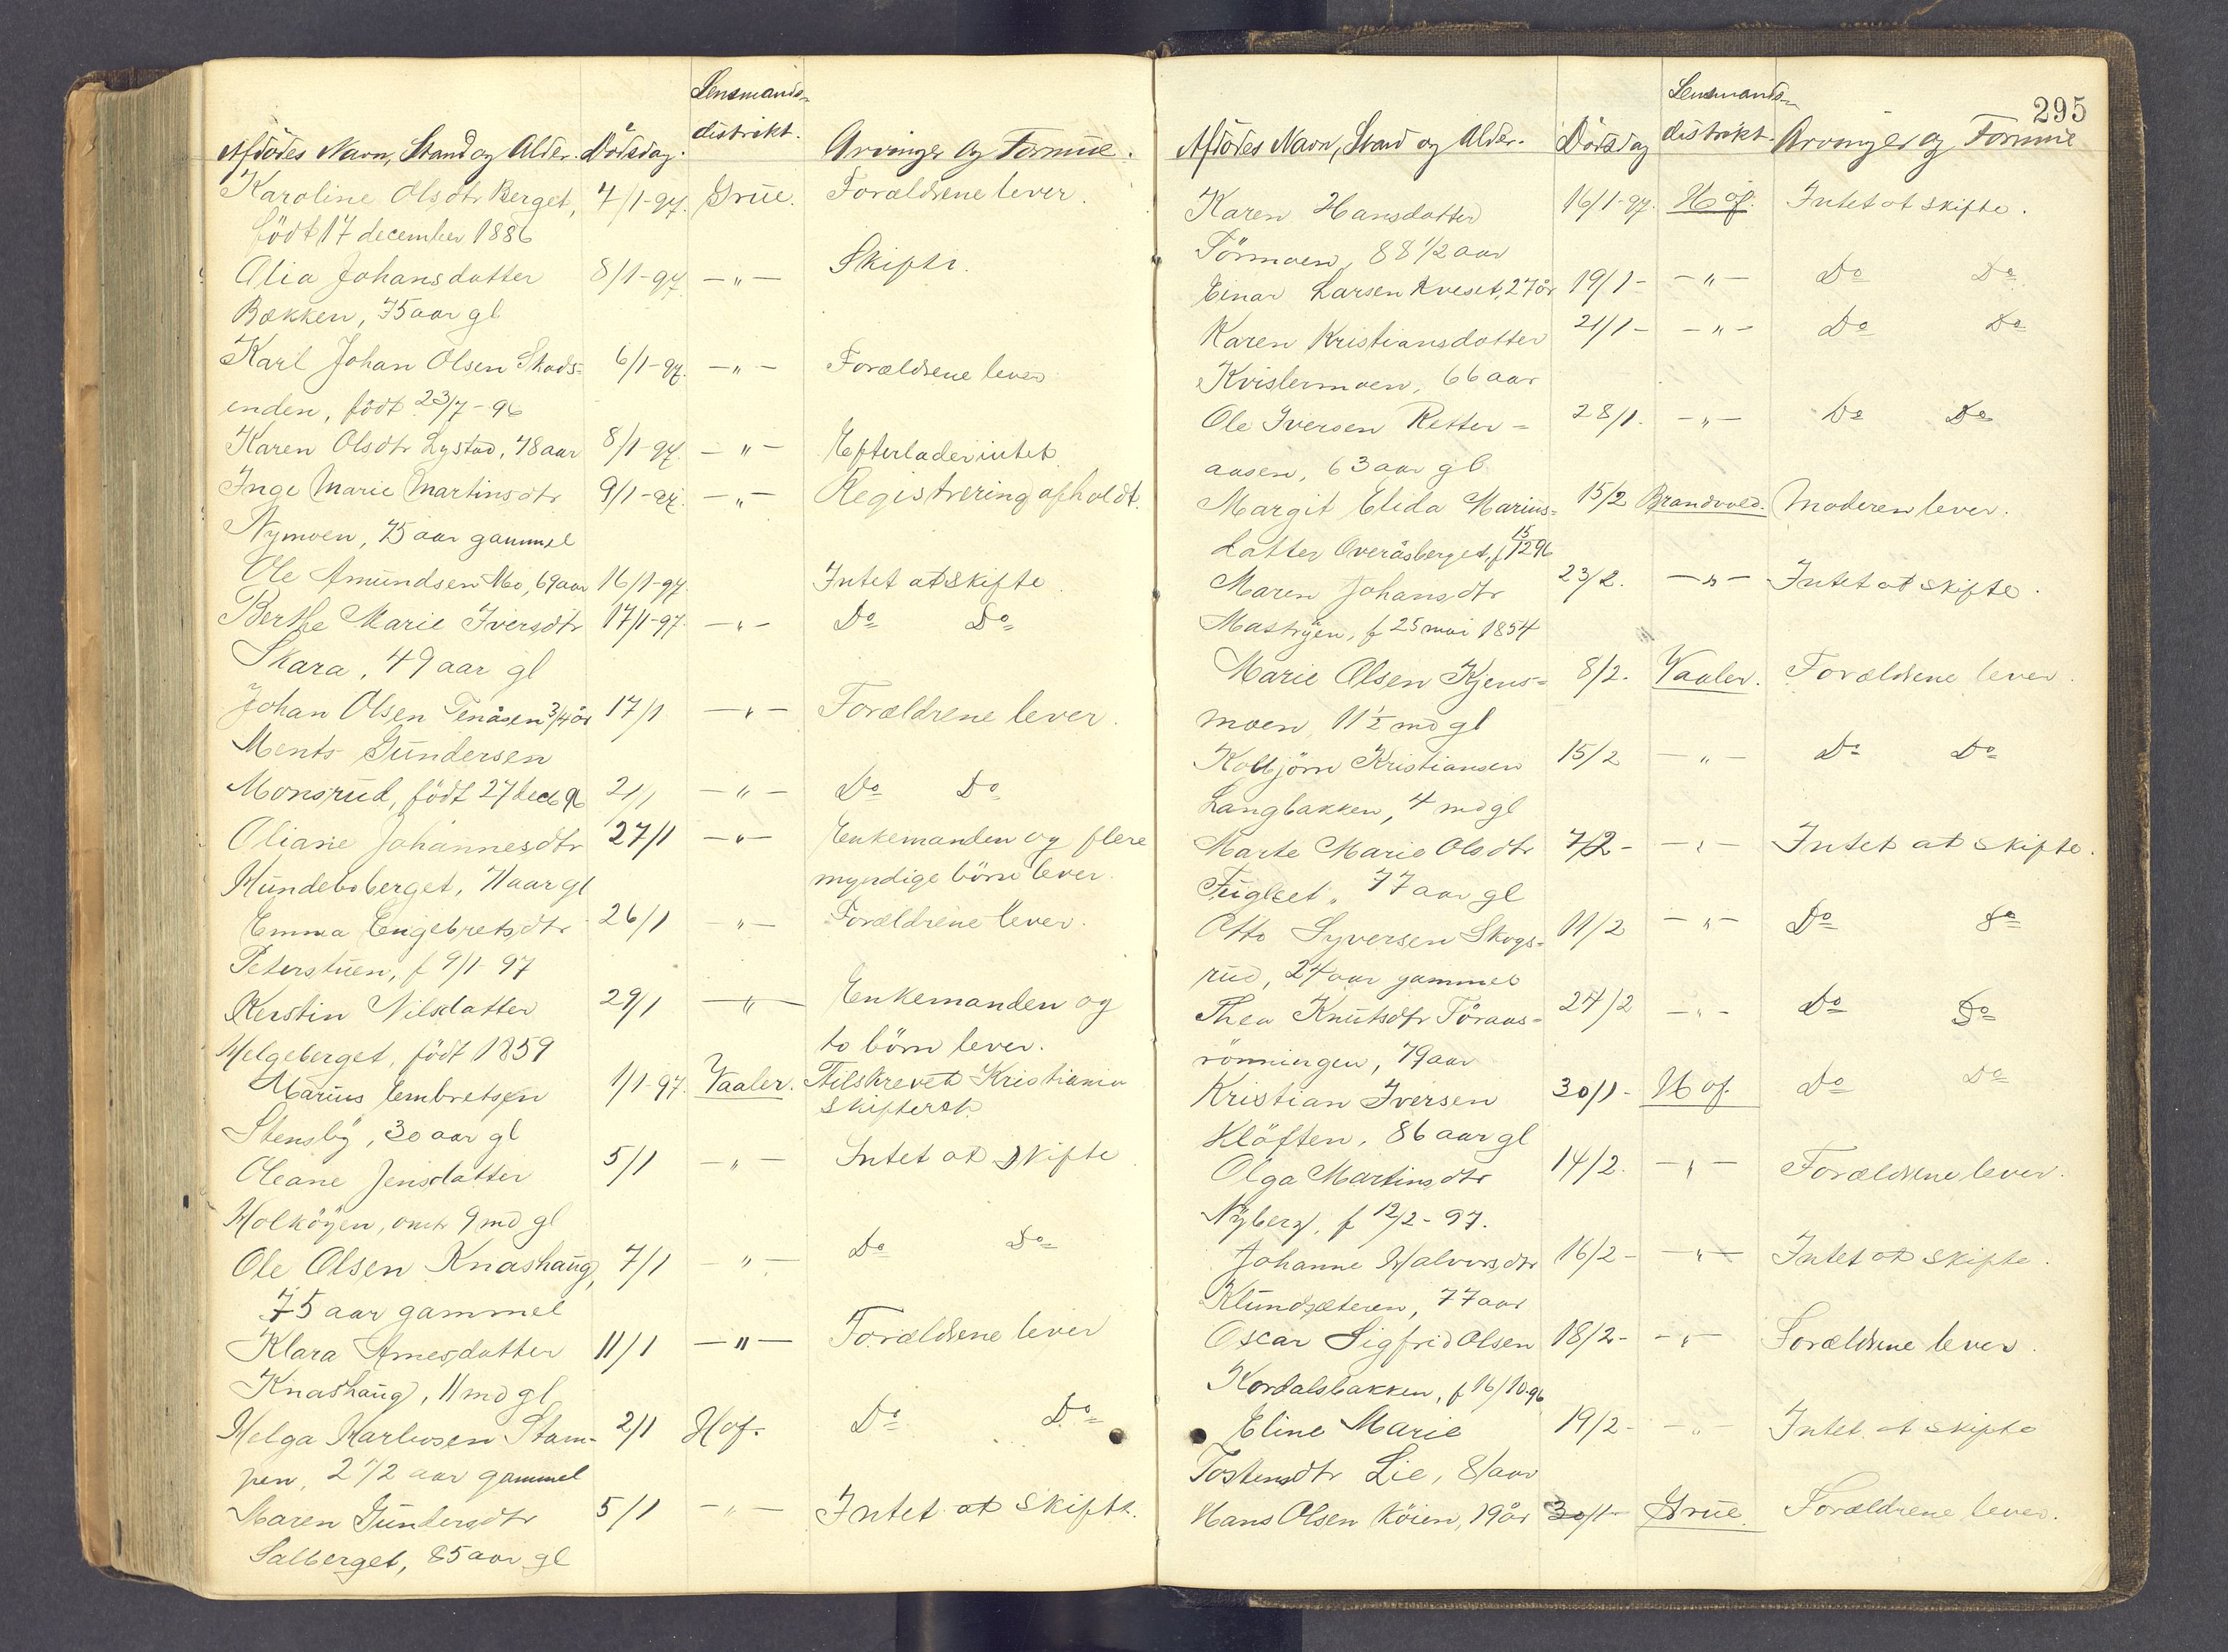 Lensmands-
Afdödes Navn, Stand og Alder. Dödsdag. distrikt. Arvinger og Formue.
Karoline Olsdtr Berget, 4/1-97. Grue. Forældrene lever.
född 17 december 1886
Olia Johansdatter 8/1-97 -"- Skifte.
Bækken, 75 aar gl
Karl Johan Olsen Skads- 6/1-97. -"- Forældrene lever
enden, född 23/7-96
Karen Olsdtr Lystad, 48 aar 8/1-97. -"- Efterlader intet
Inge Marie Martinsdtr 9/1-97. -"- Registrering afholdt.
Nymoen, 75 aar gammel
Ole Amundsen Mo, 69 aar 16/1-97. Intet at skifte
Berthe Marie Iversdtr 17/1-97. -"- Do Do
Skara, 49 aar gl
Johan Olsen Tenåsen 3/4 år 17/1 -"- Forældrene lever.
Ments Gundersen
Monsrud, född 27 dec 96 21/1 -"- Do Do
Oliane Johannesdtr 27/1 -"- Enkemanden og flere
Hundeboberget, 71 aar gl myndige börn lever.
Emma Engebretsdtr 26/1 -"- Forældrene lever.
Peterstuen, f 9/1 97
Kerstin Nilsdatter 29/1 -"- Enkemanden og
Helgeberget, född 1859 to börn lever.
Marius Embretsen 1/1-97. Vaaler. Tilskrevet Kristiania
Stensby, 30 aar gl skifteret.
Oleane Jensdatter 5/1 -"- Intet at skifte
Holköyen, omtr 9 md gl
Ole Olsen Knashaug, 7/1 -"- Do Do
75 aar gammel
Klara Arnesdatter 11/1 -"- Forældrene lever
Knashaug, 11 md gl
Helga Karlusen Stam- 2/1 Hof. Do Do
pen, 2 1/2 aar gammel
Maren Gundersdtr 5/1 -"- Intet at skifte.
Salberget, 85 aar gl
295
Lensmands-
Afdödes Navn, Stand og Alder. Dödsdag distrikt. Arvinger og Formue
Karen Hansdatter 16/1-97. Hof. Intet at skifte.
Törmoen, 88 1/2 aar
Einar Larsen Kveset, 27 år 19/1- -"- Do Do
Karen Kristiansdatter 21/1- -"- Do Do
Kvislermoen, 66 aar
Ole Iversen Retter- 28/1. -"- Do Do
aasen, 63 aar gl
Margit Elida Marius- 15/2 Brandvold. Moderen lever.
datter Overåsberget, f 15/12 96
Maren Johansdtr 23/2. -"- Intet at skifte.
Mastryen, f 25 mai 1854
Marie Olsen Kjens- 8/2. Vaaler. Forældrene lever.
moen 11 1/2 md gl
Kolbjörn Kristiansen 15/2 -"- Do Do
Langbakken, 4 md gl
Marte Marie Olsdtr 7/2- -"- Intet at skifte.
Fuglset, 77 aar gl
Otto Syversen Skogs- 11/2 -"- Do do
rud, 24 aar gammel
Thea Knutsdtr Töraas- 24/2 -"- Do Do
rönningen, 79 aar
Kristian Iversen 30/1- Hof. Do Do
Klöften, 86 aar gl
Olga Martinsdtr 14/2. -"- Forældrene lever.
Nyberg, f 12/2-97.
Johanne Halvorsdtr 16/2- -"- Intet at skifte.
Klundsæteren, 77 aar
Oscar Sigfrid Olsen 18/2- -"- Forældrene lever.
Kordalsbakken, f 16/10-96
Eline Marie 19/2- -"- Intet at skifte
Tostensdtr Lie, 81 aar
Hans Olsen Köien, 19 år 30/1- Grue. Forældrene lever.